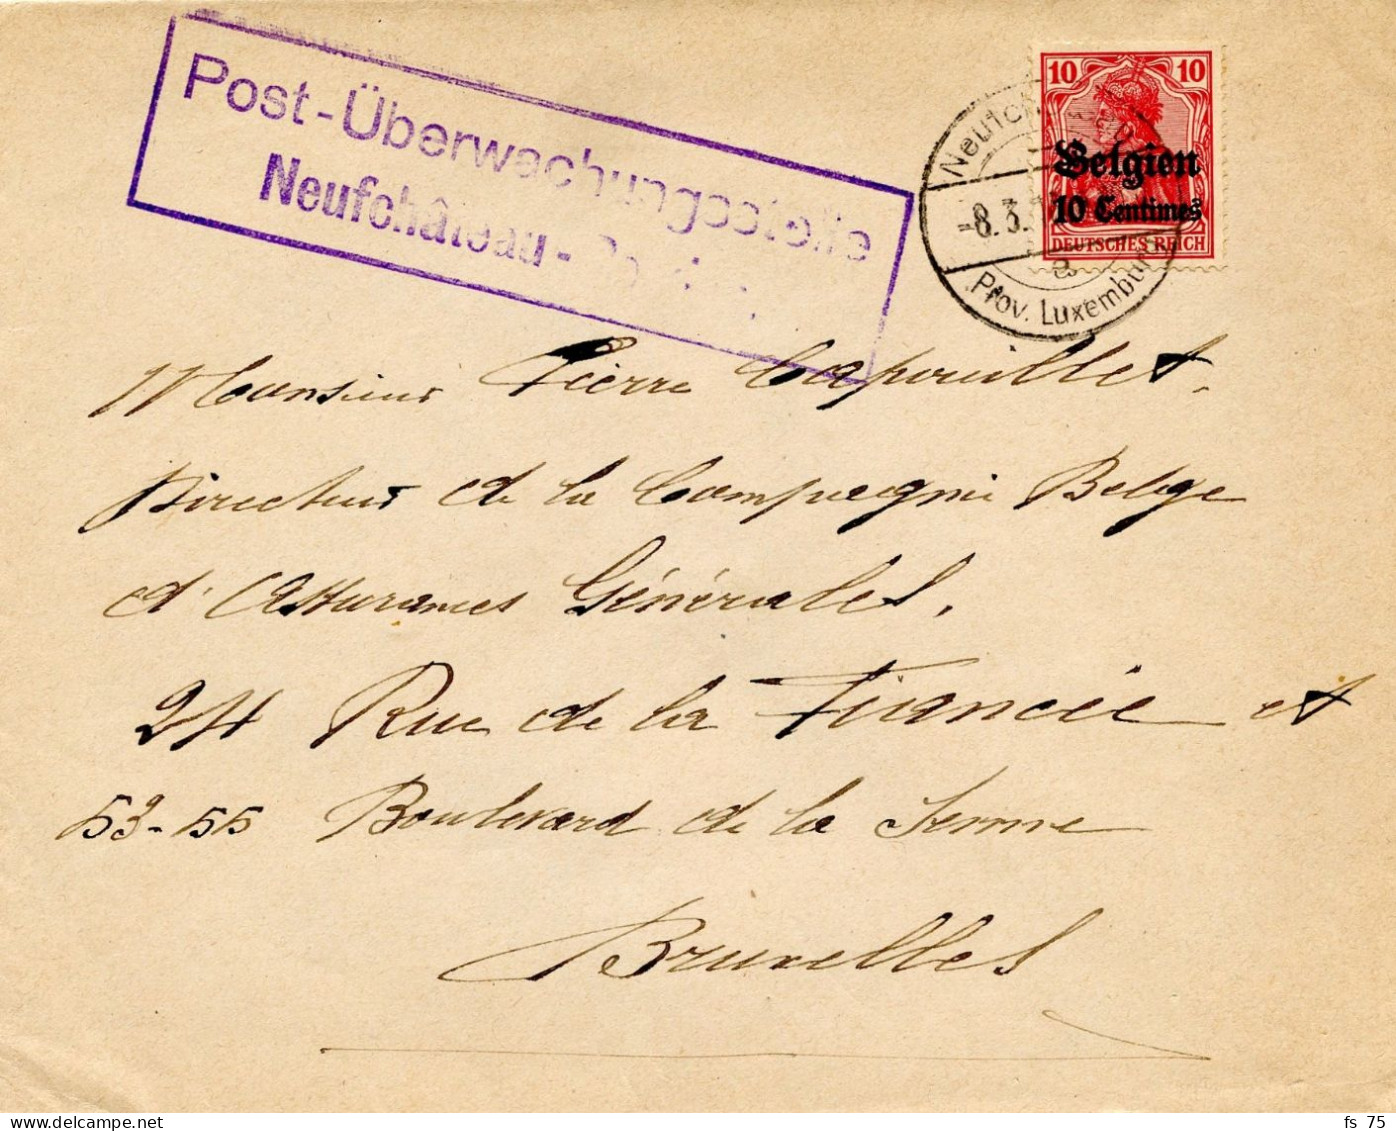 Post-Überwachungsstelle
Neufchâteau -
10 10
Belgien
10 Centimes
DEUTSCHES REICH
-8.3.
e
Prov. Luxemburg
Monsieur Pierre Capouillet.
Directeur de la Compagnie Belge
d'Assurances Générales.
24 Rue de la Fiancée et
53-55 Boulevard de la Senne
Bruxelles
fs 75